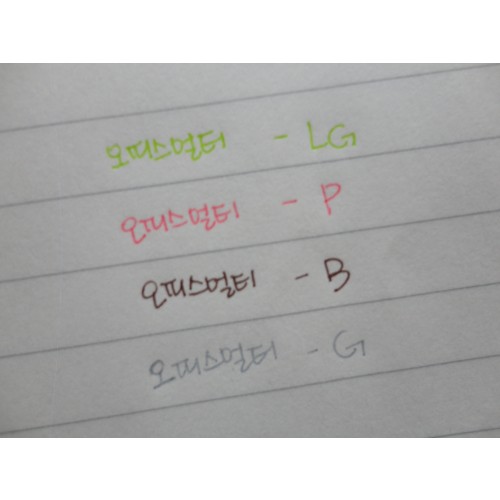 오피스멀티 - LG
오피스멀티 - P
오피스멀티 - B
오피스멀티 - G